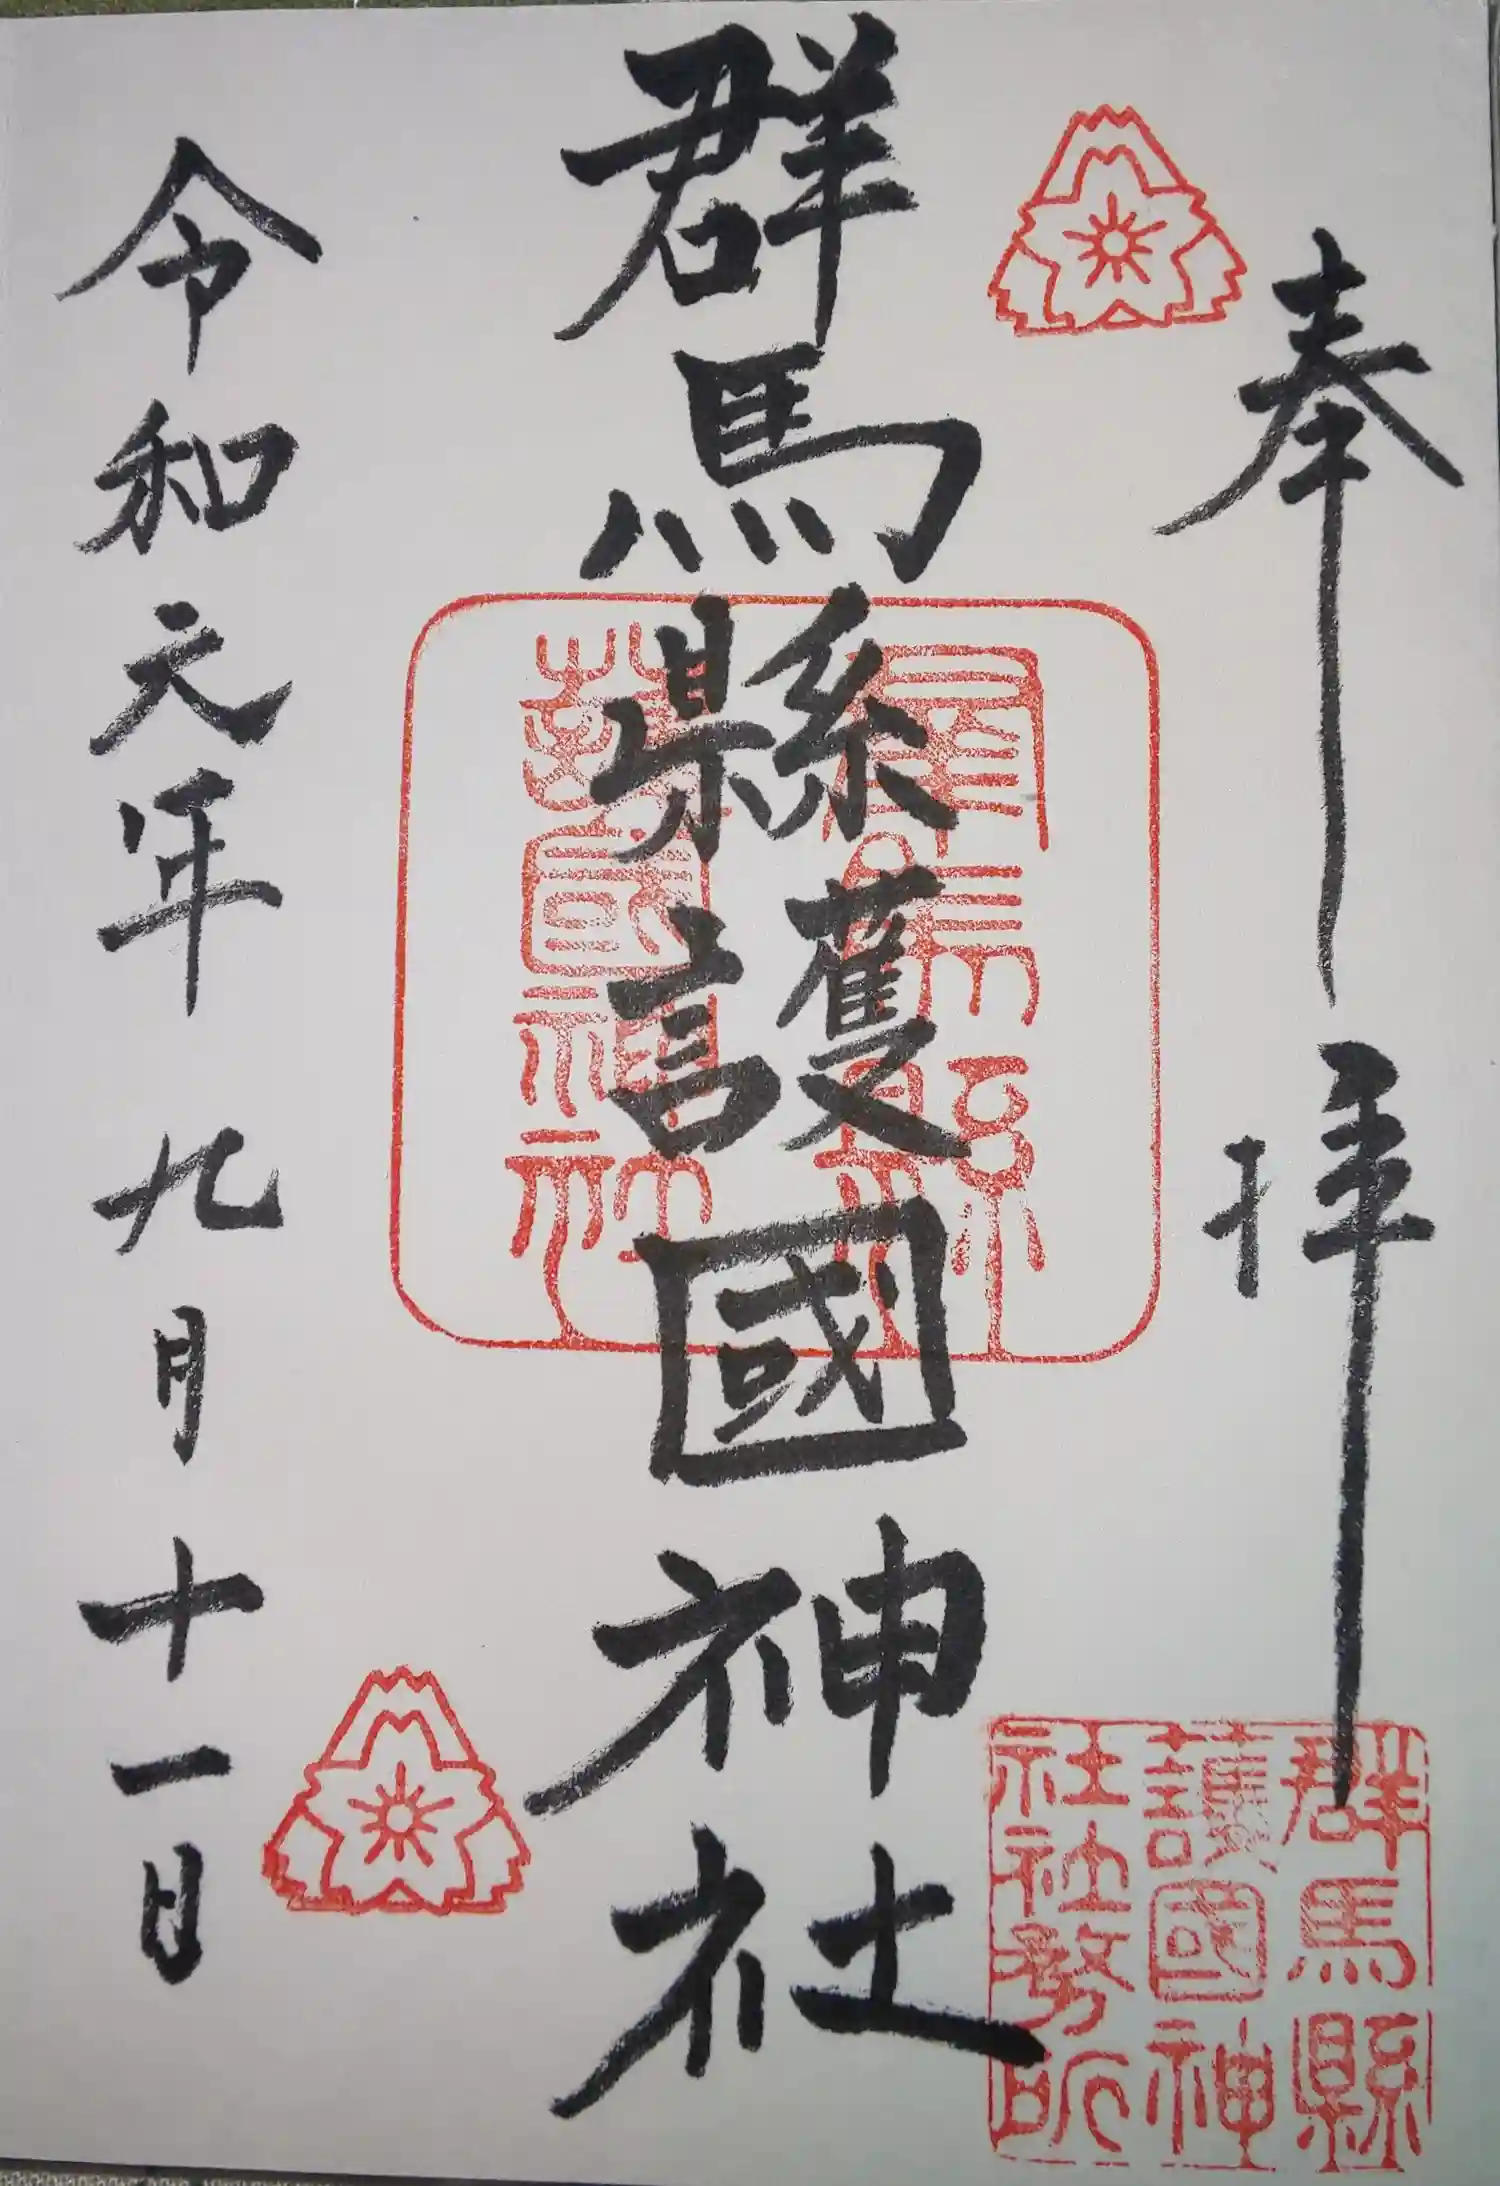 奉拝
群馬縣護國神社
令和元年九月十一日
群馬縣
護國神
社社務所